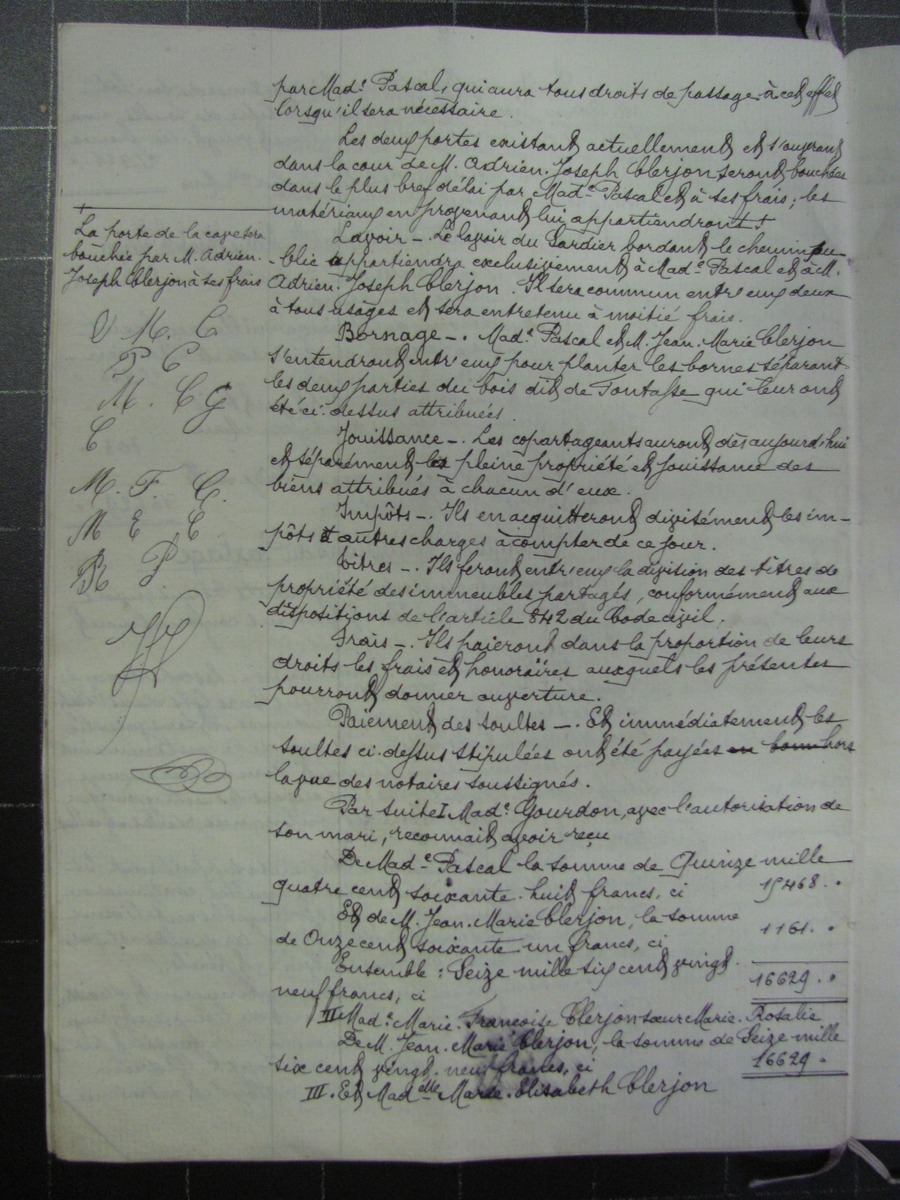 par Made Pascal, qui aura tous droits de passage à cet effet
lorsqu'il sera nécessaire.
Les deux portes existant actuellement et s'ouvrant
dans la cour de M. Adrien-Joseph Clerjon seront bouchées
dans le plus bref délai par Made Pascal et à ses frais ; les
matériaux en provenant lui appartiendront +
Lavoir -. Le lavoir du Gardier bordant le chemin pu
-blic appartiendra exclusivement à Made Pascal et à M.
Adrien-Joseph Clerjon. Il sera commun entr'eux deux
à tous usages et sera entretenu à moitié frais.
Bornage -. Made Pascal et M. Jean-Marie Clerjon
s'entendront entr'eux pour planter les bornes séparant
les deux parties du bois dit de Fontasse qui leur ont
été ci-dessus attribuées.
Jouissance -. Les copartageants auront dès aujourd'hui
et séparément la pleine propriété et jouissance des
biens attribués à chacun d'eux.
Impôts -. Ils en acquitteront divisément les im-
pôts et autres charges à compter de ce jour.
Titres -. Ils feront entr'eux la division des titres de
propriété des immeubles partagés, conformément aux
dispositions de l'article 842 du Code civil.
Frais -. Ils paieront dans la proportion de leurs
droits les frais et honoraires auxquels les présentes
pourront donner ouverture.
Paiement des soultes -. Et immédiatement les
soultes ci-dessus stipulées ont été payées hors
la vue des notaires soussignés.
Par suite I Made Gourdon, avec l'autorisation de
son mari, reconnait avoir reçu
De Made Pascal la somme de Quinze mille
quatre cent soixante-huit francs, ci 15468. "
Et de M. Jean-Marie Clerjon, la somme
de Onze cent soixante un francs, ci 1161. "
Ensemble : Seize mille six cent vingt
neuf francs, ci 16629. "
II Made Marie-Françoise Clerjon sœur Marie-Rosalie
De M. Jean-Marie Clerjon, la somme de Seize mille
six cent vingt-neuf francs, ci 16629. "
III. Et Madelle Marie-Elisabeth Clerjon
+
La porte de la cave sera
bouchée par M. Adrien-
Joseph Clerjon à ses frais
J M. C
P C
M. C G
C
M. F. C.
M E C
R P.